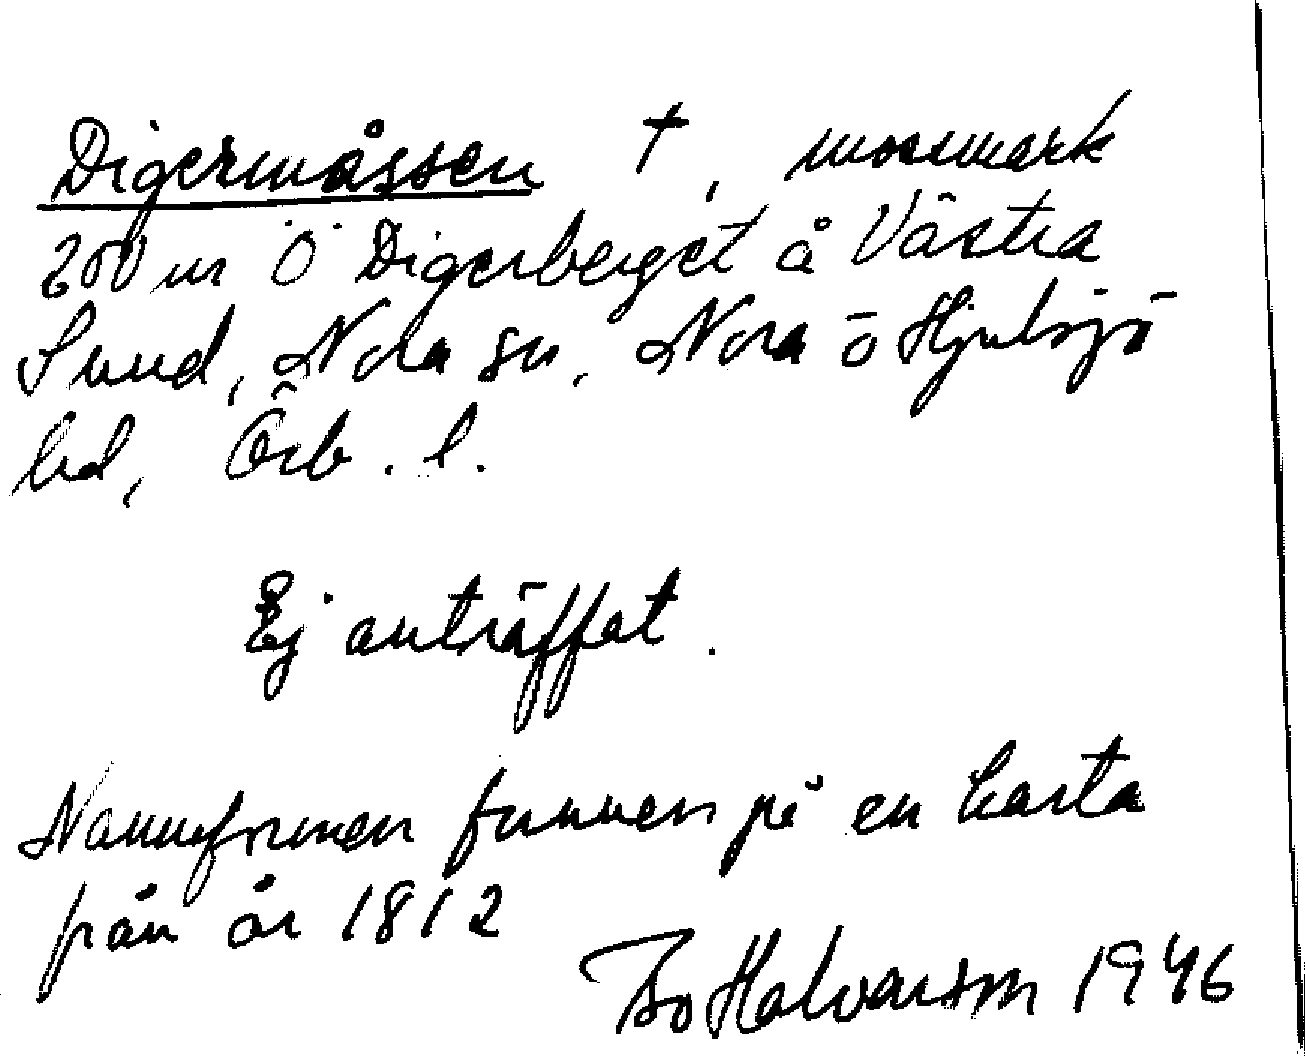 Digermåssen †, mossmark
200 m Ö Digerberget å Västra
Sund, Nora sn, Nora ō Hjulsjö
bd, Örb. l.
Ej anträffat.
Namnformen funnen på en karta
från år 1812
Bo Halvarson 1946